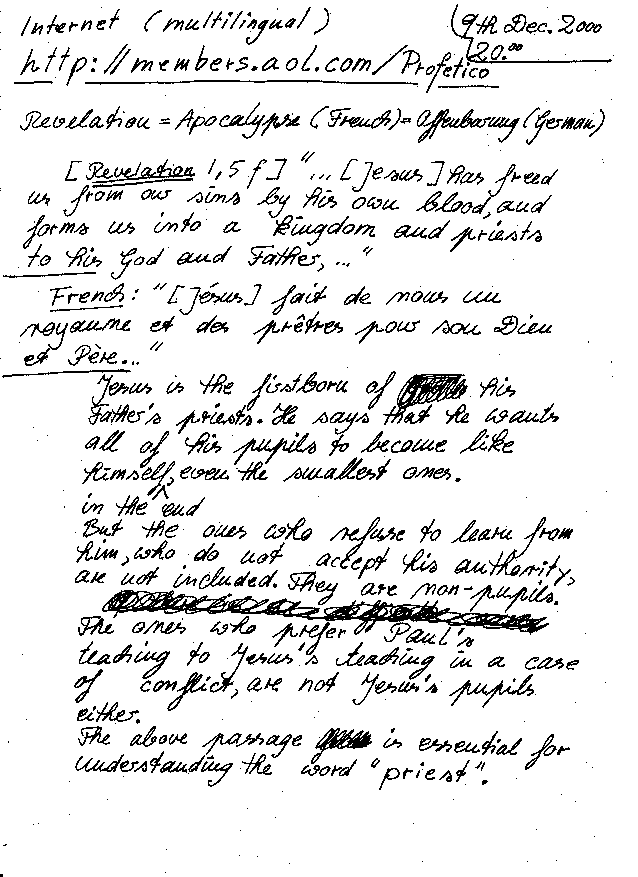 Internet (multilingual)
9th Dec. 2000
20.00
http://members.aol.com/Profetico
Revelation = Apocalypse (French) = Offenbarung (German)
[Revelation 1,5 f] "... [Jesus] has freed
us from our sins by his own blood, and
forms us into a kingdom and priests
to his God and Father, ..."
French: "[Jésus] fait de nous un
royaume et des prêtres pour son Dieu
et Père..."
Jesus is the firstborn of his
Father's priests. He says that he wants
all of his pupils to become like
himself, even the smallest ones.
in the end
But the ones who refuse to learn from
him, who do not accept his authority,
are not included. They are non-pupils.
The ones who prefer Paul's
teaching to Jesus's teaching in a case
of conflict, are not Jesus's pupils
either.
The above passage is essential for
understanding the word "priest".